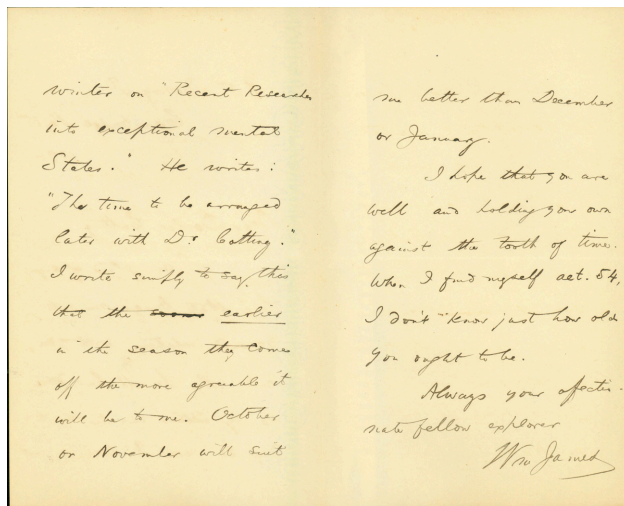 winter on "Recent Researches
into exceptional mental
States." He writes:
"The time to be arranged
later with Dr Cotting."
I write simply to say, this
that the sooner earlier
in the season they come
off the more agreeable it
will be to me. October
or November will suit
me better than December
or January.
I hope that you are
well and holding your own
against the tooth of time.
When I find myself aet. 54,
I don't know just how old
you ought to be.
Always your affectio-
nate fellow explorer
Wm James